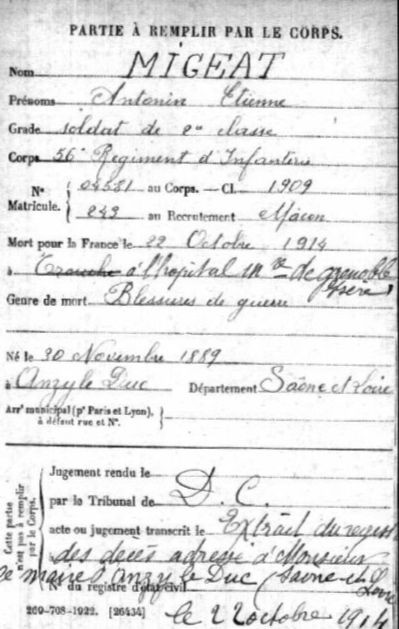 PARTIE À REMPLIR PAR LE CORPS.
Nom MIGEAT
Prénoms Antonin Etienne
Grade soldat de 2e classe
Corps 56e Regiment d'Infanterie
N° Matricule. { 04581 au Corps. — Cl. 1909
243 au Recrutement Mâcon
Mort pour la France le 22 Octobre 1914
à Tranchée à l'hopital m re de grenoble
Isère
Genre de mort Blessures de guerre
Né le 30 Novembre 1889
à Anzy le Duc Département Saône et Loire
Arrt municipal (pr Paris et Lyon), à défaut rue et N°.
Cette partie n'est pas à remplir par le Corps.
Jugement rendu le
par le Tribunal de D. C.
acte ou jugement transcrit le Extrait du regist
à des decès adresse à Monsieur
le maire d'Anzy le Duc (Saône et Loire
N° du registre d'état civil
269-708-1922. [26434] le 22 octobre 1914